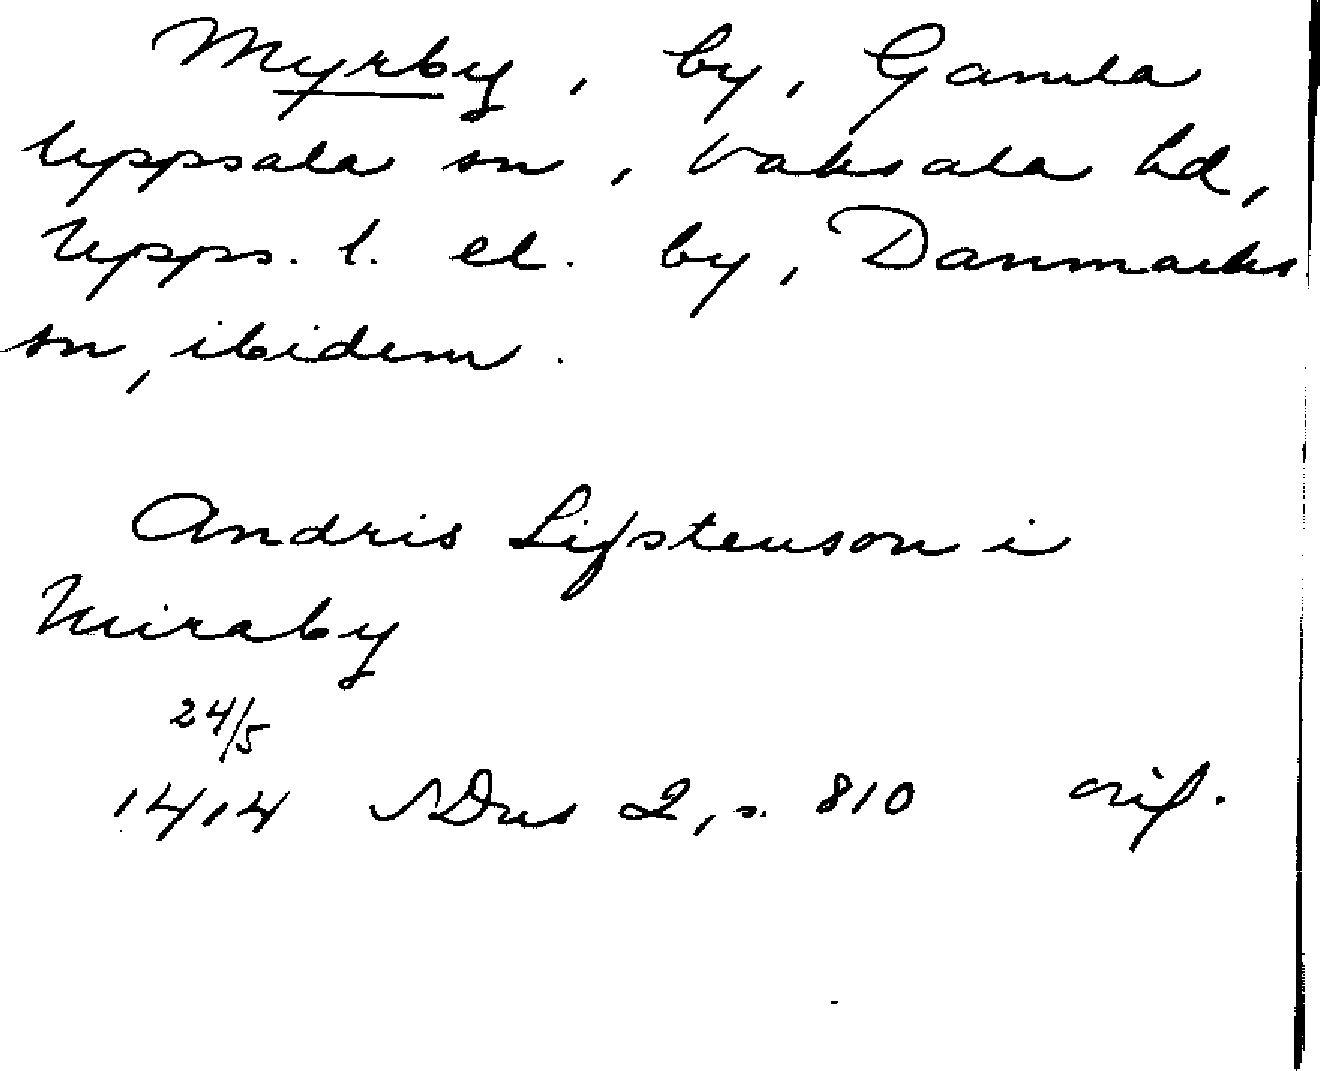 Myrby, by, Gamla
Uppsala sn, Vaksala hd,
Upps. l. el. by, Danmarks
sn, ibidem.
Andris Lifstenson i
Miraby
24/5
1414 SDns 2, s. 810 orig.